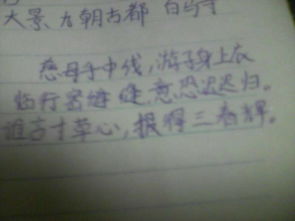 大景、九朝古都 白马寺
慈母手中线,游子身上衣
临行密缝缝,意恐迟迟归。
谁言寸草心,报得三春辉。